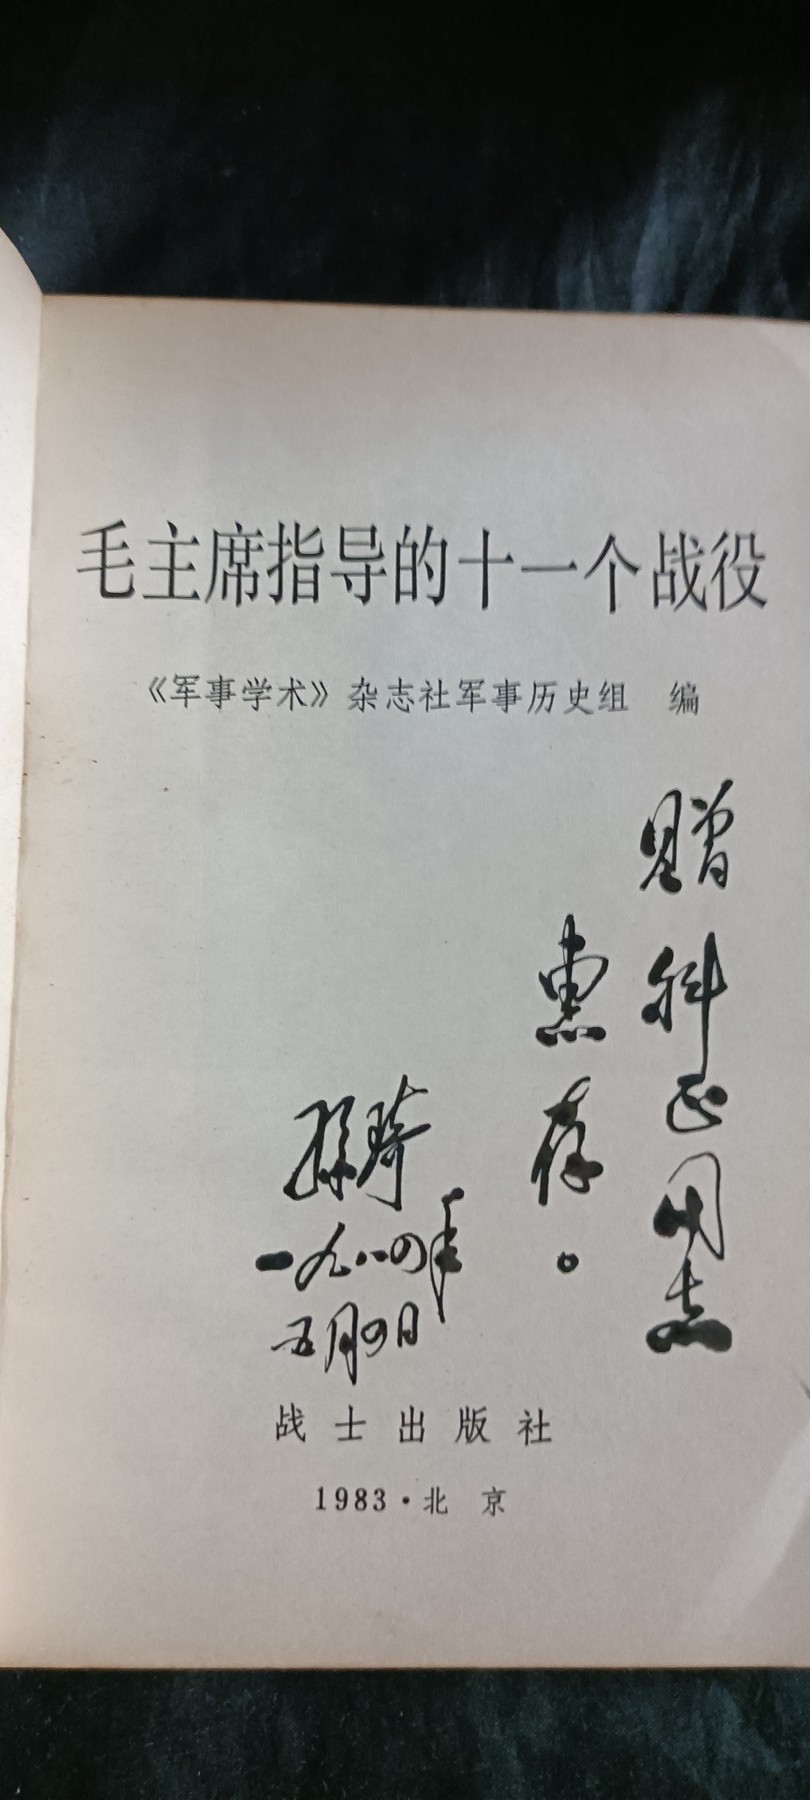 毛主席指导的十一个战役
《军事学术》杂志社军事历史组 编
赠 科正同志
惠存。
孙琦
一九八四年
五月四日
战士出版社
1983·北京